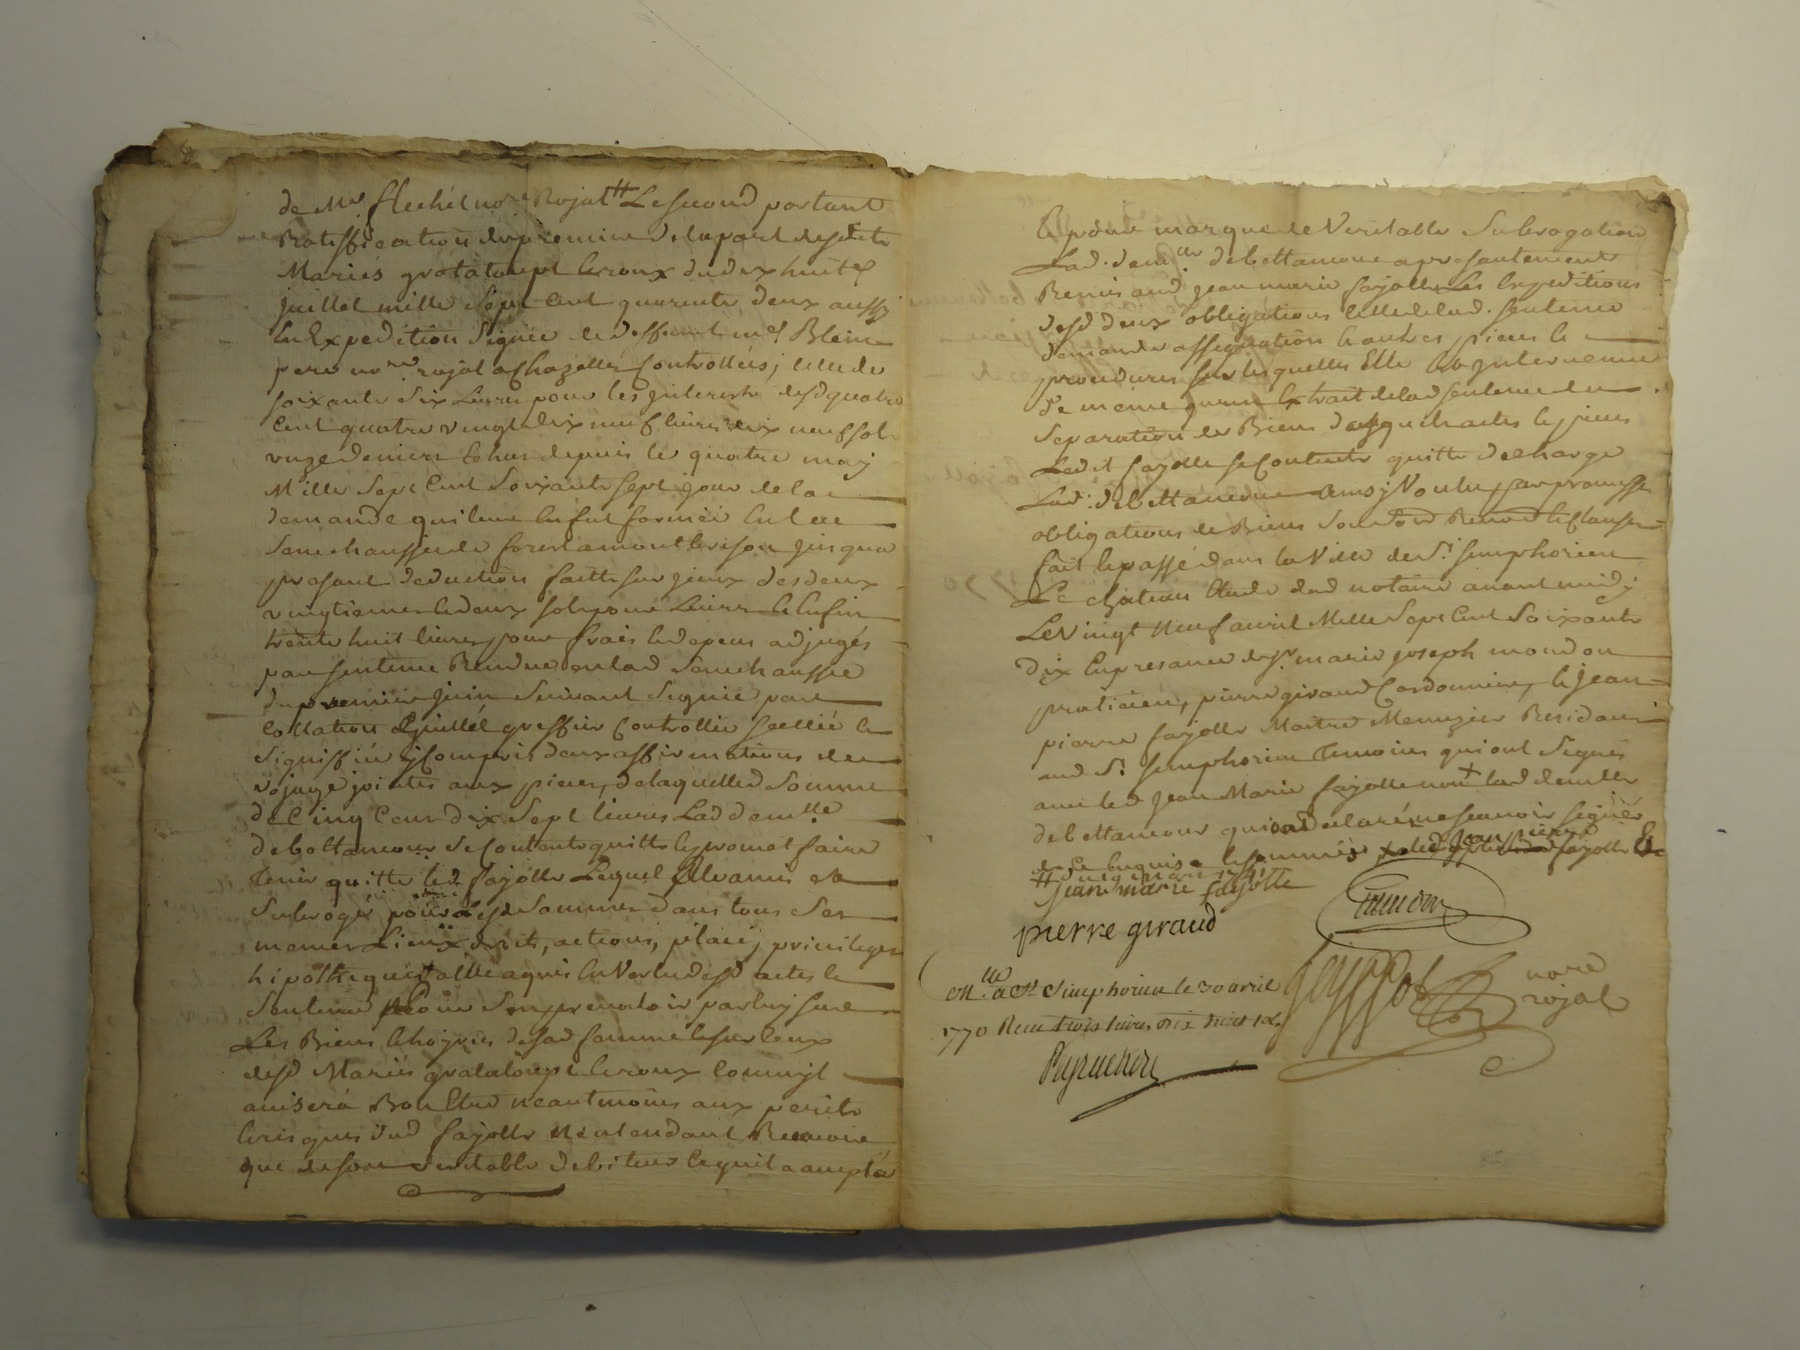 de Me. flechet nore Royal # Le second portant
Ratiffication du premier de la part desdits
Mariés grataloupt leroux du dix huit
juillet mille Sept Cent quarente deux aussy
En Expedition Signée de deffunt me Blein
pere nore royal a Chazelles Controllées; celle de
soixante Six Livres pour les jnterests desd quatre
Cent quatre vingt dix neuf livres dix neuf sols
unze deniers Echus depuis le quatre may
Mille Sept Cent Soixante Sept jour de la
demande qui leur En fut formée En la
Senechaussée de forest a montbrison jusqua
presant deduction faitte sur jceux des deux
vingtiemes et deux sols pour Livre Et Enfin
trente huit livres pour frais et depens adjugés
par sentence Rendue en lad Senechaussée
du premier juin Suivant Signée par
Collation greffier Controllée scellée et
Signiffiée y Compris deux affirmations de
vojage jointes aux pieces, de laquelle d Somme
de Cinq Cent dix Sept livres Lad demlle
debottancour Se Contente quitte et promet faire
tenir quitte led fayolle Lequel Elle a mis et
Subrogé pour Lesd Sommes dans tous Ses
memes Lieux droits, actions, place, privileges
hipotheques a Elle aquis En Vertu desd actes et
Sentence pour Sen prevaloir par luy sur
Les Biens Echoyres de sad femme et sur Ceux
desd Mariés grataloupt leroux Comme jl
avisera Bon Etre neantmoins aux perils
Et risques dud fayolle Nentendant Reconnoitre
que desore veritable debiteur Ce quil a accepté
Et pour marque de Veritable Subrogation
Lad. demlle debottancour a presantement
Remis aud jean marie fayolle Les Expeditions
desd deux obligations celle de lad. Sentence
demande assignation Et autres pieces et
procedures sur lesquelles Elle Est jntervenue
de meme quun Extrait de lad sentence de
Separation de Biens desquels actes et pieces
Ledit fayolle se Contente quitte decharge
Lad: debottancour Ainsy Voulu par promesse
obligations de Biens Renon et Clauses
fait et passé dans la Ville de St. simphorien
Le chateau Etude dud notaire avant midy
Le Vingt Neuf avril Mille Sept Cent Soixante
dix En presance de sr. marie joseph mondon
praticien, pierre giraud Cordonnier, et jean
pierre fayolle Maitre Menuzier Residants
aud St. simphorien Temoins qui ont Signés
avec led Jean Marie fayolle non lad demlle
debottancour qui a declaré ne scavoir signer
de Ce Enquise et sommée x led jean pierre fayolle
jean marie fayolle
pierre giraud
mondon
Con.lle a St Simphorien le 30 avril
1770 Recu trois livres dix huit sols
nore
royal